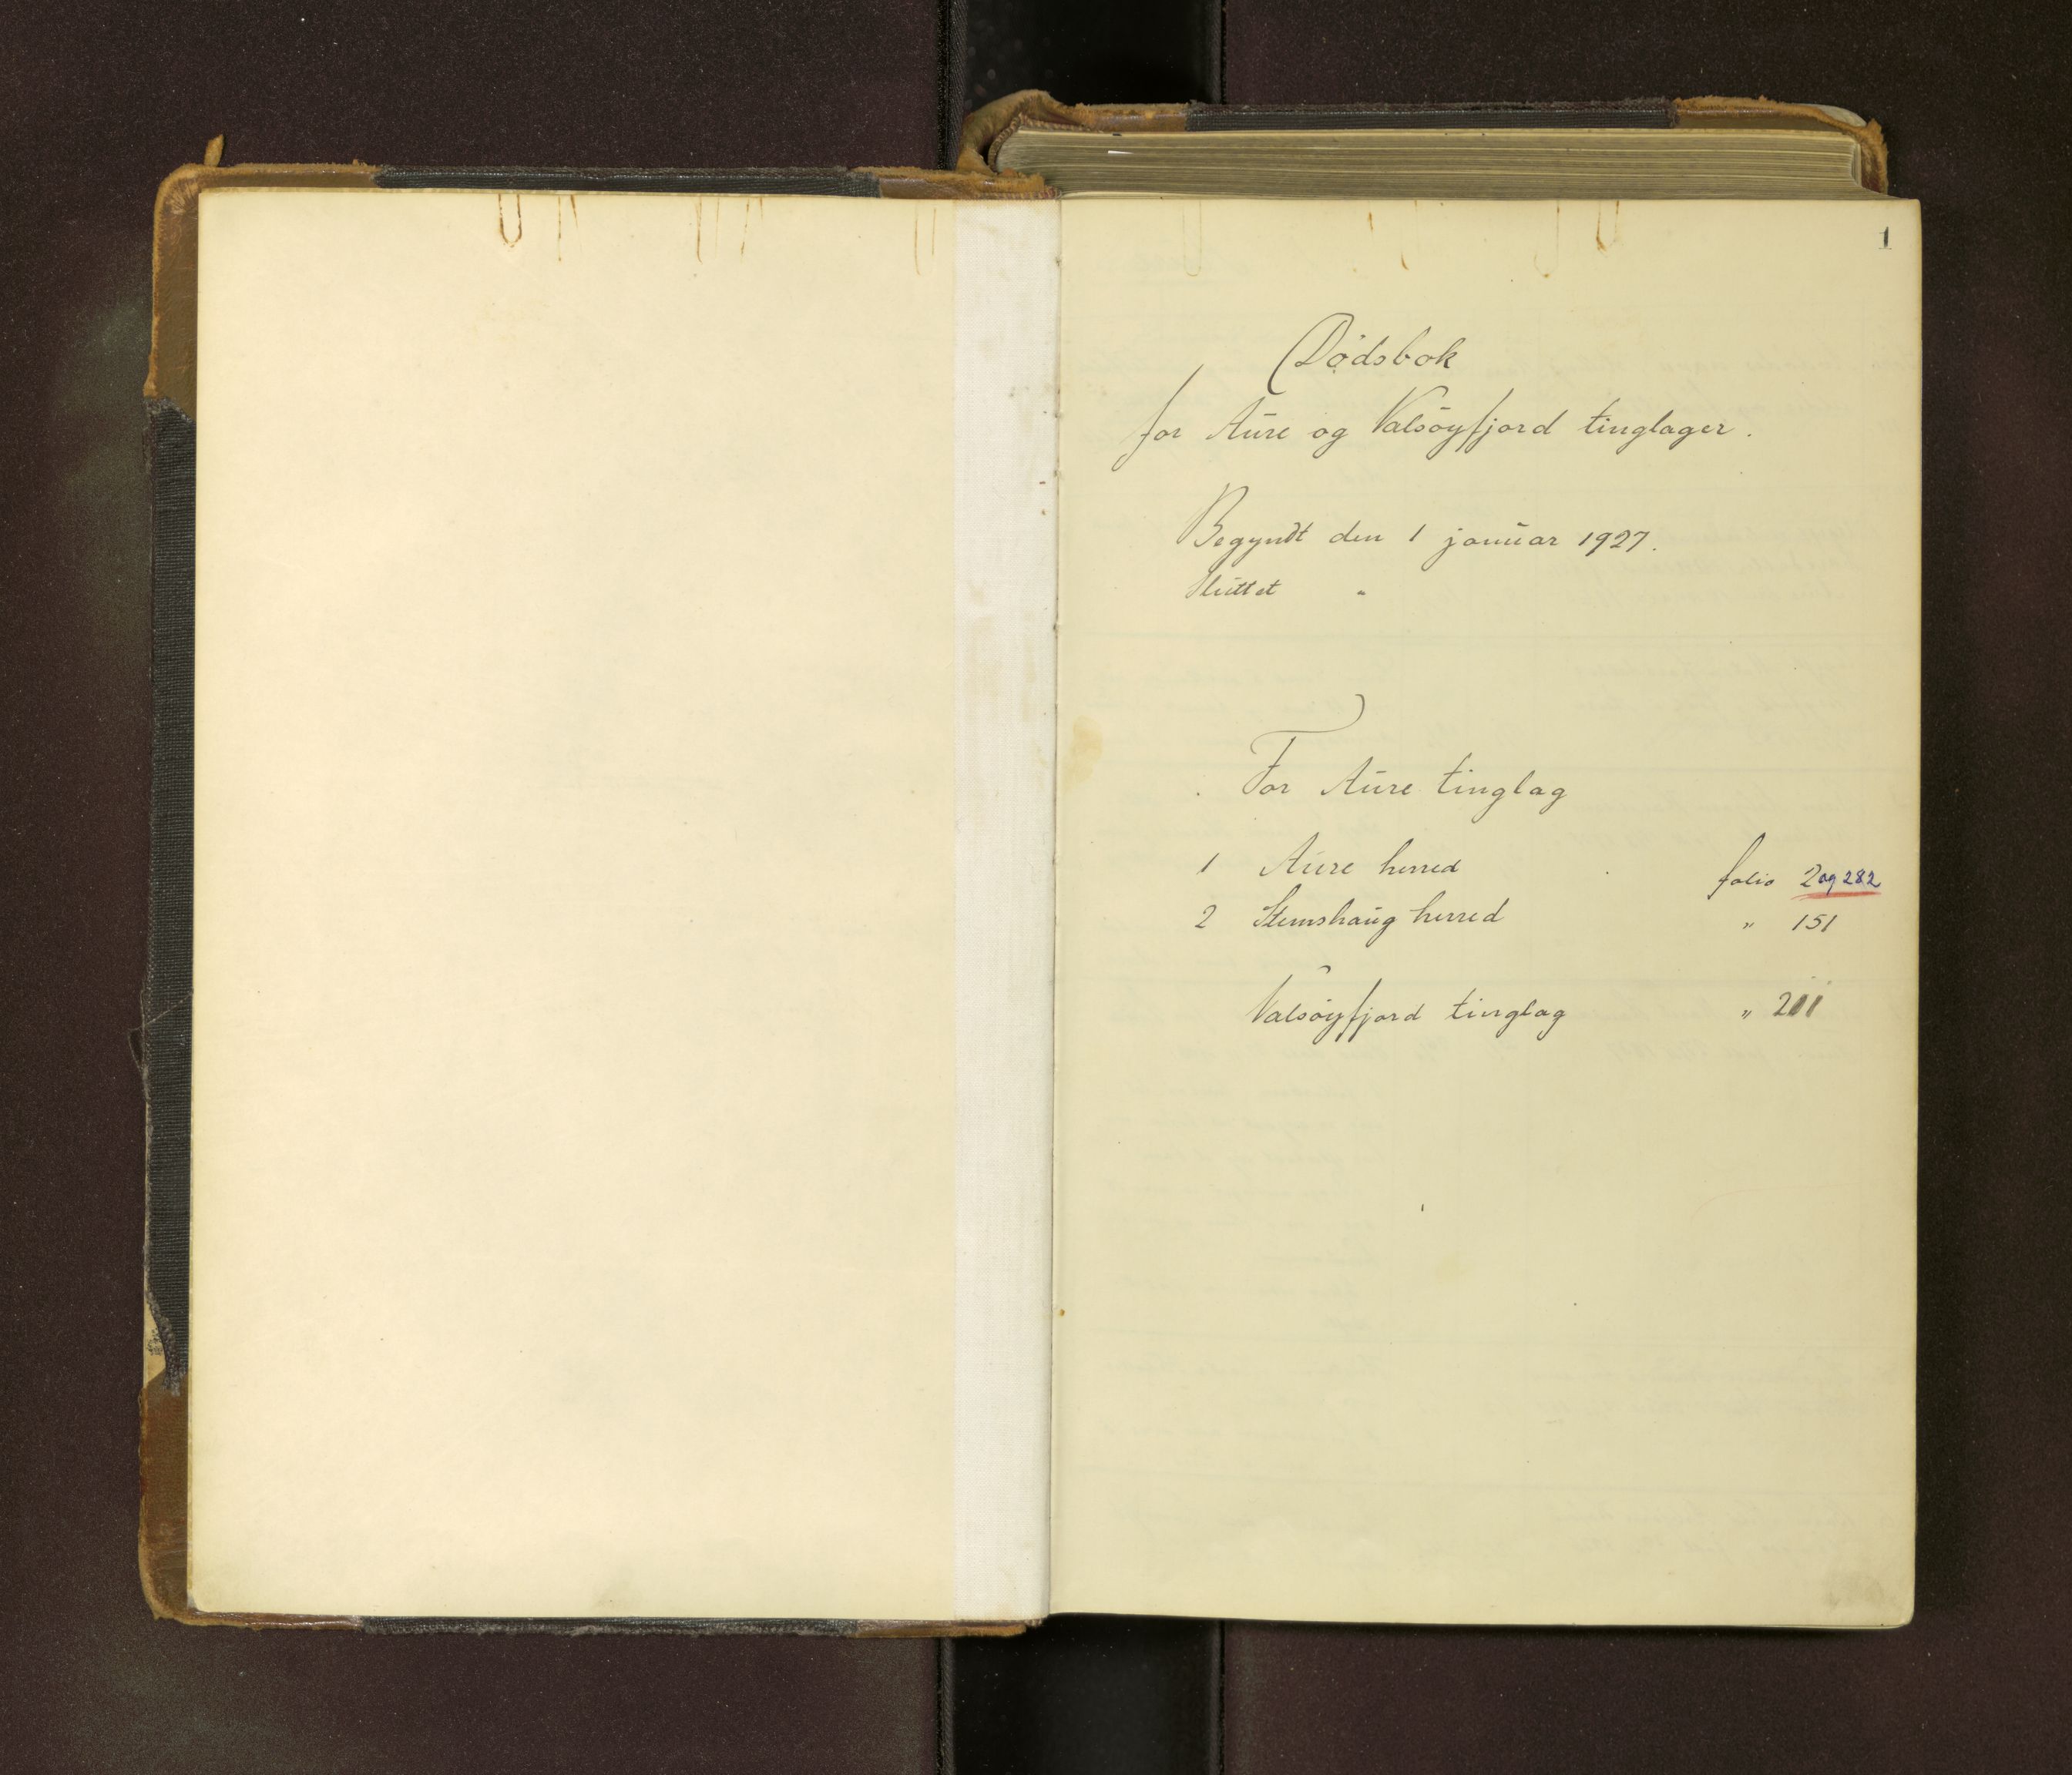 1
Dødsbok
for Aure og Valsøyfjord tinglager.
Begyndt den 1 januar 1927.
Sluttet "
For Aure tinglag
1 Aure herred folio 2 og 282
2 Stemshaug herred " 151
Valsøyfjord tinglag " 211